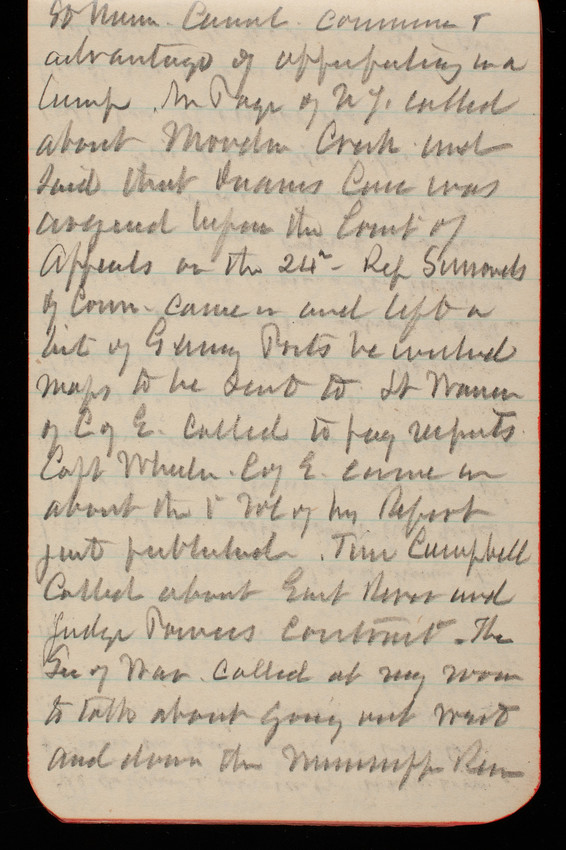 advantage of appropriating in a
lump. Mr Page of N.Y. called
about Mordu Creek and
said that Inames Case was
argued before the Court of
Appeals on the 24" - Rep Simonds
of Conn. came in and left a
list of G Army Posts he wished
maps to be sent to Lt Warren
of C of E. called to pay respects
Capt Wheeler. C of E. came in
about the 1 Vol of his Report
just published. Tim Campbell
called about East River and
Judge Powers contract. The
Sec of War called at my room
to talk about going out west
and down the Mississipp River